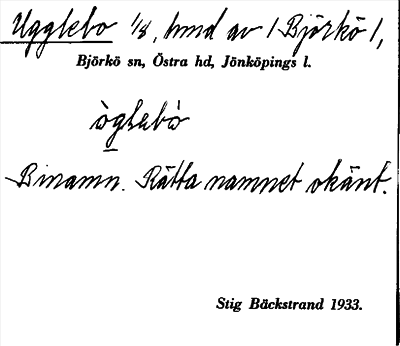 Ugglebo 1/8, hmd av 1 Björkö 1,
Björkö sn, Östra hd, Jönköpings l.
ògləbò
Binamn. Rätta namnet okänt.
Stig Bäckstrand 1933.